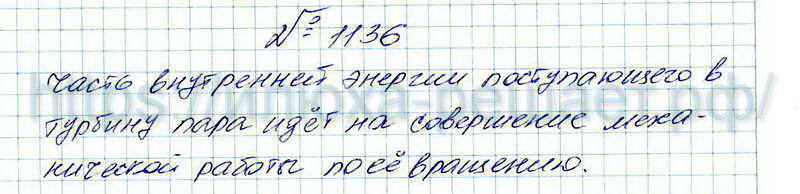 № 1136
Часть внутренней энергии поступающего в
турбину пара идёт на совершение меха-
нической работы по её вращению.